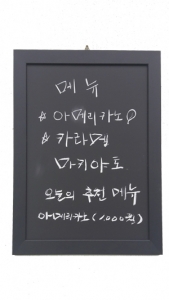 메뉴
☆ 아메리카노
☆ 카라멜
마키아토
오늘의 추천 메뉴
아메리카노 (1,000원)